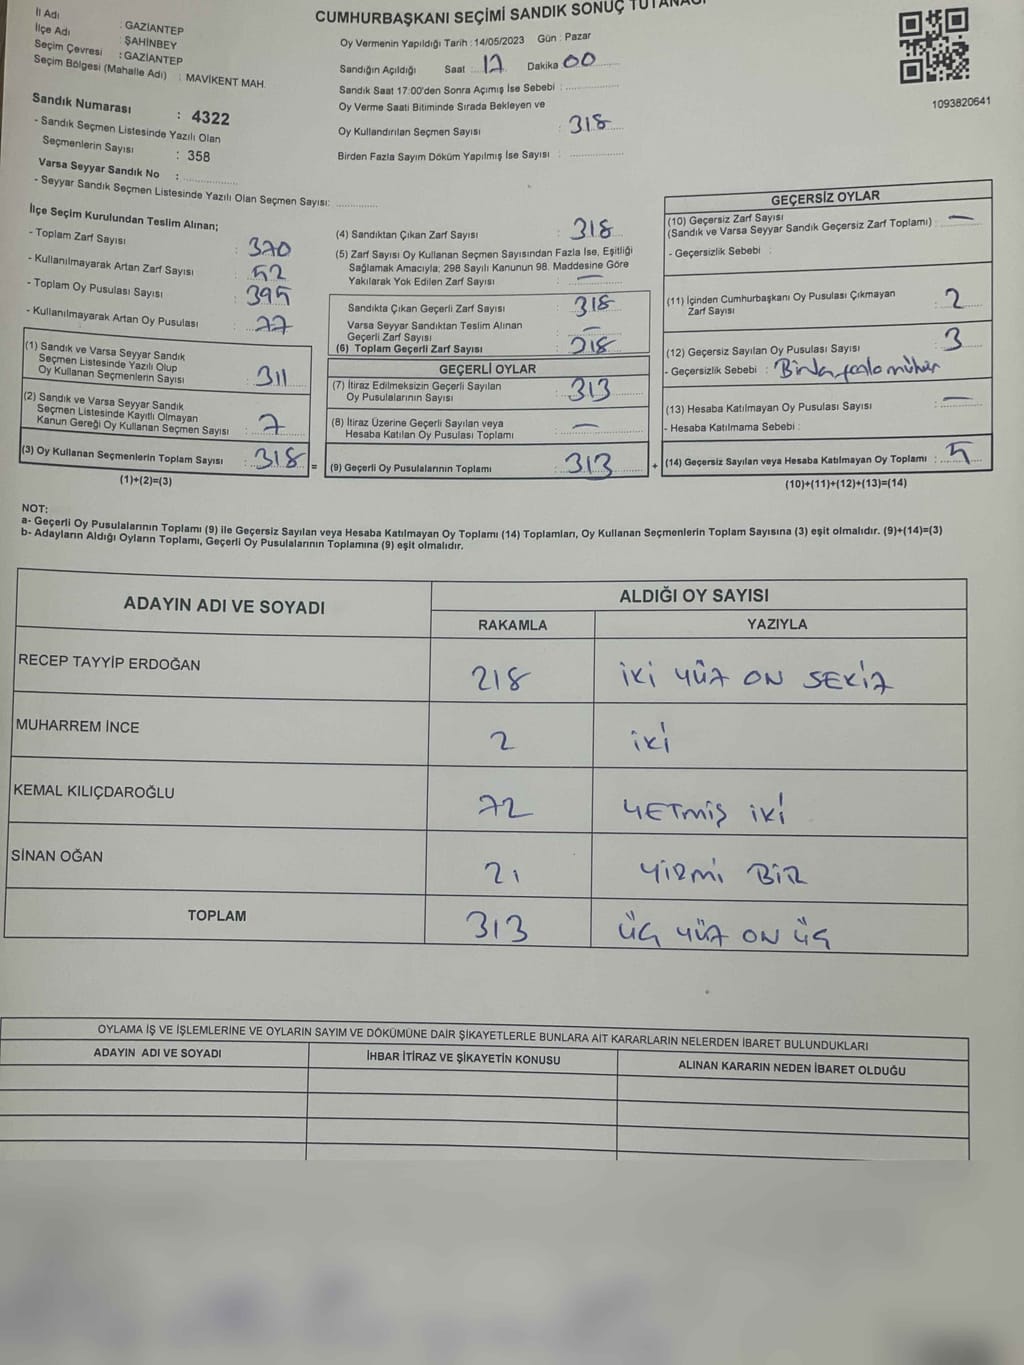 CUMHURBAŞKANI SEÇİMİ SANDIK SONUÇ TUTANAĞI
İl Adı : GAZİANTEP
İlçe Adı : ŞAHİNBEY
Seçim Çevresi : GAZİANTEP
Seçim Bölgesi (Mahalle Adı) : MAVİKENT MAH.
Sandık Numarası : 4322
- Sandık Seçmen Listesinde Yazılı Olan
Seçmenlerin Sayısı : 358
Varsa Seyyar Sandık No :
- Seyyar Sandık Seçmen Listesinde Yazılı Olan Seçmen Sayısı:
Oy Vermenin Yapıldığı Tarih : 14/05/2023 Gün : Pazar
Sandığın Açıldığı Saat : 17 Dakika 00
Sandık Saat 17:00'den Sonra Açımış İse Sebebi :
Oy Verme Saati Bitiminde Sırada Bekleyen ve
Oy Kullandırılan Seçmen Sayısı : 318
Birden Fazla Sayım Döküm Yapılmış İse Sayısı :
1093820641
İlçe Seçim Kurulundan Teslim Alınan;
- Toplam Zarf Sayısı : 370
- Kullanılmayarak Artan Zarf Sayısı : 52
- Toplam Oy Pusulası Sayısı : 395
- Kullanılmayarak Artan Oy Pusulası : 77
(1) Sandık ve Varsa Seyyar Sandık
Seçmen Listesinde Yazılı Olup
Oy Kullanan Seçmenlerin Sayısı : 311
(2) Sandık ve Varsa Seyyar Sandık
Seçmen Listesinde Kayıtlı Olmayan
Kanun Gereği Oy Kullanan Seçmen Sayısı : 7
(3) Oy Kullanan Seçmenlerin Toplam Sayısı : 318 =
(1)+(2)=(3)
(4) Sandıktan Çıkan Zarf Sayısı : 318
(5) Zarf Sayısı Oy Kullanan Seçmen Sayısından Fazla İse, Eşitliği
Sağlamak Amacıyla; 298 Sayılı Kanunun 98. Maddesine Göre
Yakılarak Yok Edilen Zarf Sayısı : —
Sandıkta Çıkan Geçerli Zarf Sayısı : 318
Varsa Seyyar Sandıktan Teslim Alınan
Geçerli Zarf Sayısı : —
(6) Toplam Geçerli Zarf Sayısı : 318
GEÇERLİ OYLAR
(7) İtiraz Edilmeksizin Geçerli Sayılan
Oy Pusulalarının Sayısı : 313
(8) İtiraz Üzerine Geçerli Sayılan veya
Hesaba Katılan Oy Pusulası Toplamı : —
(9) Geçerli Oy Pusulalarının Toplamı : 313 +
GEÇERSİZ OYLAR
(10) Geçersiz Zarf Sayısı
(Sandık ve Varsa Seyyar Sandık Geçersiz Zarf Toplamı) : —
- Geçersizlik Sebebi :
(11) İçinden Cumhurbaşkanı Oy Pusulası Çıkmayan
Zarf Sayısı : 2
(12) Geçersiz Sayılan Oy Pusulası Sayısı : 3
- Geçersizlik Sebebi : Birden fazla mühür
(13) Hesaba Katılmayan Oy Pusulası Sayısı : —
- Hesaba Katılmama Sebebi :
(14) Geçersiz Sayılan veya Hesaba Katılmayan Oy Toplamı : 5
(10)+(11)+(12)+(13)=(14)
NOT:
a- Geçerli Oy Pusulalarının Toplamı (9) ile Geçersiz Sayılan veya Hesaba Katılmayan Oy Toplamı (14) Toplamları, Oy Kullanan Seçmenlerin Toplam Sayısına (3) eşit olmalıdır. (9)+(14)=(3)
b- Adayların Aldığı Oyların Toplamı, Geçerli Oy Pusulalarının Toplamına (9) eşit olmalıdır.
ADAYIN ADI VE SOYADI ALDIĞI OY SAYISI
RAKAMLA YAZIYLA
RECEP TAYYİP ERDOĞAN 218 İKİ YÜZ ON SEKİZ
MUHARREM İNCE 2 İKİ
KEMAL KILIÇDAROĞLU 72 YETMİŞ İKİ
SİNAN OĞAN 21 YİRMİ BİR
TOPLAM 313 ÜÇ YÜZ ON ÜÇ
OYLAMA İŞ VE İŞLEMLERİNE VE OYLARIN SAYIM VE DÖKÜMÜNE DAİR ŞİKAYETLERLE BUNLARA AİT KARARLARIN NELERDEN İBARET BULUNDUKLARI
ADAYIN ADI VE SOYADI İHBAR İTİRAZ VE ŞİKAYETİN KONUSU ALINAN KARARIN NEDEN İBARET OLDUĞU